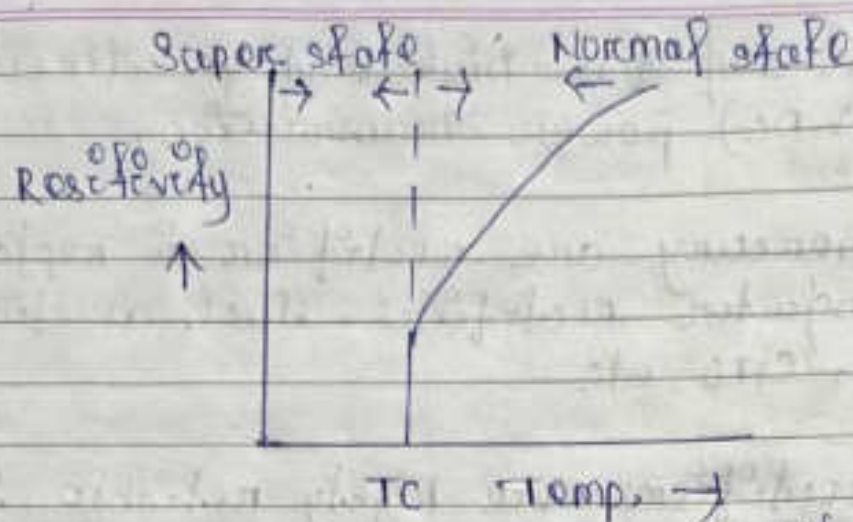 Super state Normal state
Resitivity
TC Temp.